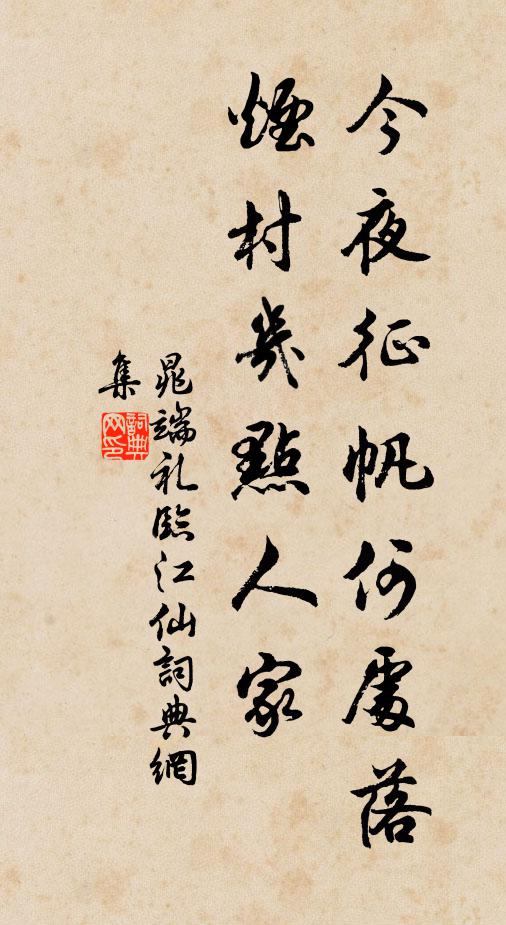 今夜征帆何處落
煙村幾點人家
晁端礼臨江仙詞典網
集
詞典
网印